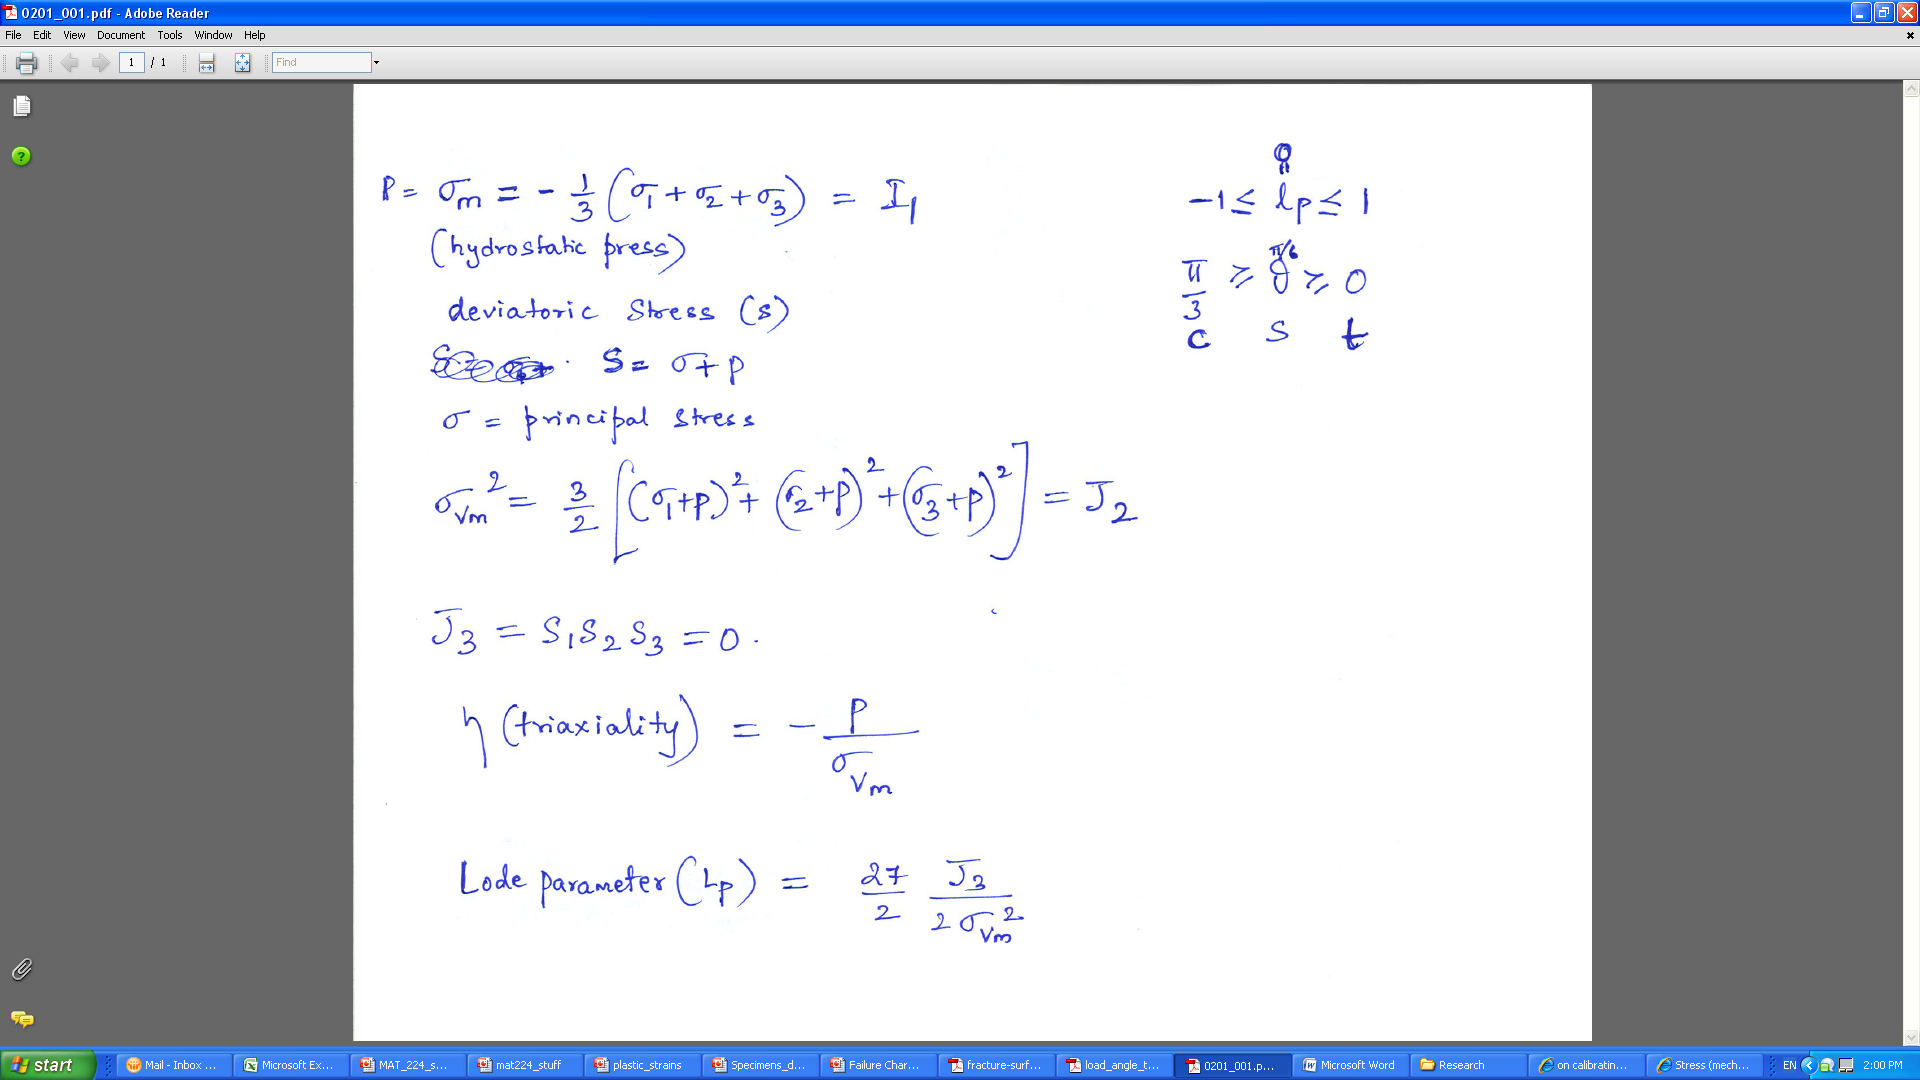 0201_001.pdf - Adobe Reader
File Edit View Document Tools Window Help
1 / 1 Find
P = σm = - 1/3 (σ1 + σ2 + σ3) = I1
(hydrostatic press)
deviatoric Stress (s)
S = σ + p
σ = principal stress
σvm² = 3/2 [(σ1+p)² + (σ2+p)² + (σ3+p)²] = J2
J3 = S1 S2 S3 = 0.
η (triaxiality) = - P/σvm
Lode parameter (Lp) = 27/2 J3/2σvm²
0
-1 ≤ lp ≤ 1
π/6
π/3 ≥ θ ≥ 0
C S t
start Mail - Inbox ... Microsoft Ex... MAT_224_s... mat224_stuff plastic_strains Specimens_d... Failure Char... fracture-surf... load_angle_t... 0201_001.p... Microsoft Word Research on calibratin... Stress (mech... EN 2:00 PM